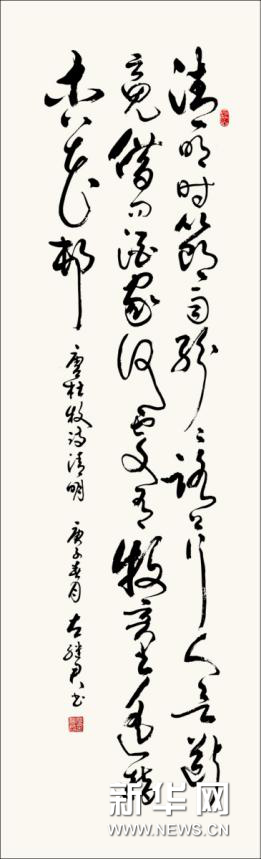 清明时节雨纷〻路上行人欲断
魂借问酒家何处有牧童遥指
杏花村
唐杜牧诗清明 庚子春月 书
新华网
WWW.NEWS.CN